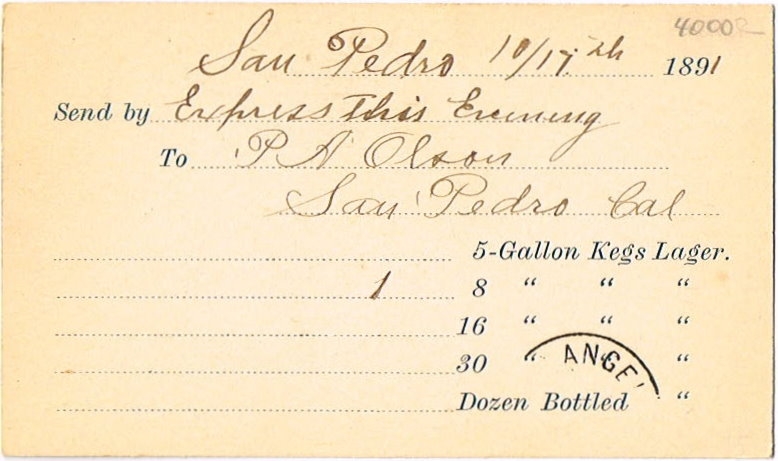 4000
San Pedro 10/17th 1891
Send by Express This Evening
To P A Olson
San Pedro Cal
5-Gallon Kegs Lager.
1 8 “ “ “
16 “ “ “
30 “ “ “
ANGE
Dozen Bottled “